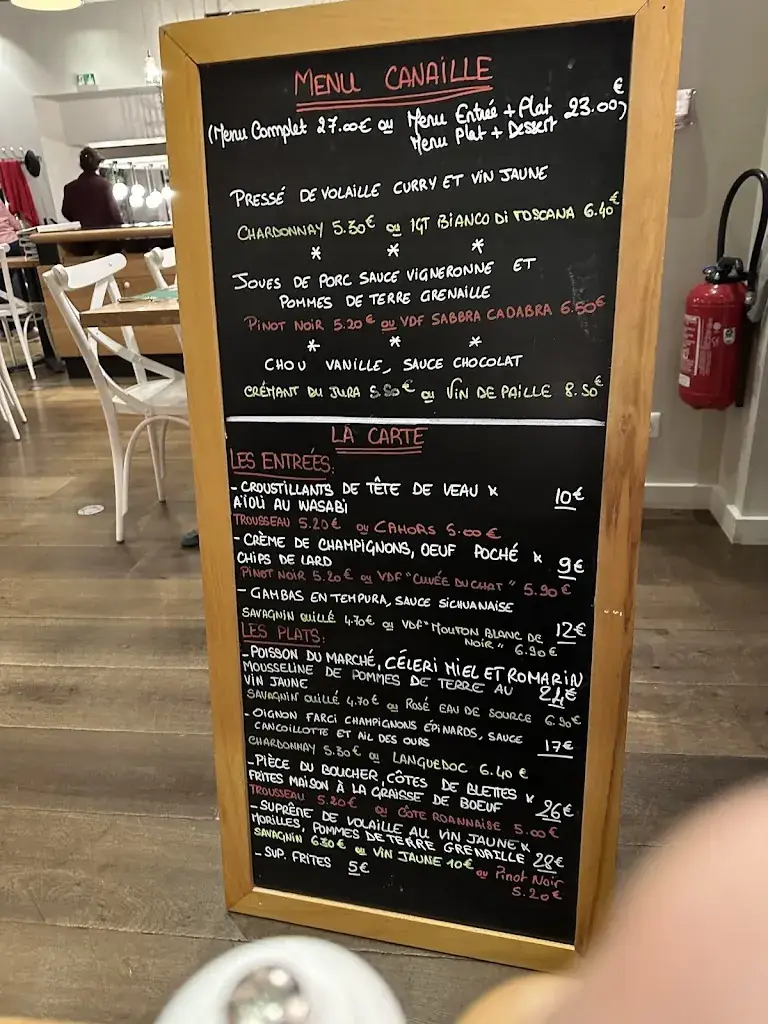 MENU CANAILLE
(Menu Complet 27.00€ ou Menu Entrée + Plat 23.00€)
Menu Plat + Dessert
PRESSÉ DE VOLAILLE CURRY ET VIN JAUNE
CHARDONNAY 5.30€ ou IGT BIANCO DI TOSCANA 6.40€
* * *
JOUES DE PORC SAUCE VIGNERONNE ET
POMMES DE TERRE GRENAILLE
PINOT NOIR 5.20€ ou VDF SABBRA CADABRA 6.50€
* * *
CHOU VANILLE, SAUCE CHOCOLAT
CRÉMANT DU JURA 5.50€ ou VIN DE PAILLE 8.50€
LA CARTE
LES ENTRÉES:
- CROUSTILLANTS DE TÊTE DE VEAU & 10€
AÏOLI AU WASABI
TROUSSEAU 5.20€ ou CAHORS 5.00€
- CRÈME DE CHAMPIGNONS, OEUF POCHÉ & 9€
CHIPS DE LARD
PINOT NOIR 5.20€ ou VDF "CUVÉE DU CHAT" 5.90€
- GAMBAS EN TEMPURA, SAUCE SICHUANAISE
SAVAGNIN OUILLÉ 4.70€ ou VDF "MOUTON BLANC DE 12€
NOIR" 6.90€
LES PLATS:
- POISSON DU MARCHÉ, CÉLERI MIEL ET ROMARIN
MOUSSELINE DE POMMES DE TERRE AU 24€
VIN JAUNE
SAVAGNIN OUILLÉ 4.70€ ou ROSÉ EAU DE SOURCE 6.90€
- OIGNON FARCI CHAMPIGNONS ÉPINARDS, SAUCE
CANCOILLOTTE ET AIL DES OURS 17€
CHARDONNAY 5.30€ ou LANGUEDOC 6.40€
- PIÈCE DU BOUCHER, CÔTES DE BLETTES &
FRITES MAISON À LA GRAISSE DE BOEUF 26€
TROUSSEAU 5.20€ ou CÔTE ROANNAISE 5.00€
- SUPRÊME DE VOLAILLE AU VIN JAUNE &
MORILLES, POMMES DE TERRE GRENAILLE 28€
SAVAGNIN 6.30€ ou VIN JAUNE 10€ ou Pinot Noir
5.20€
- SUP. FRITES 5€